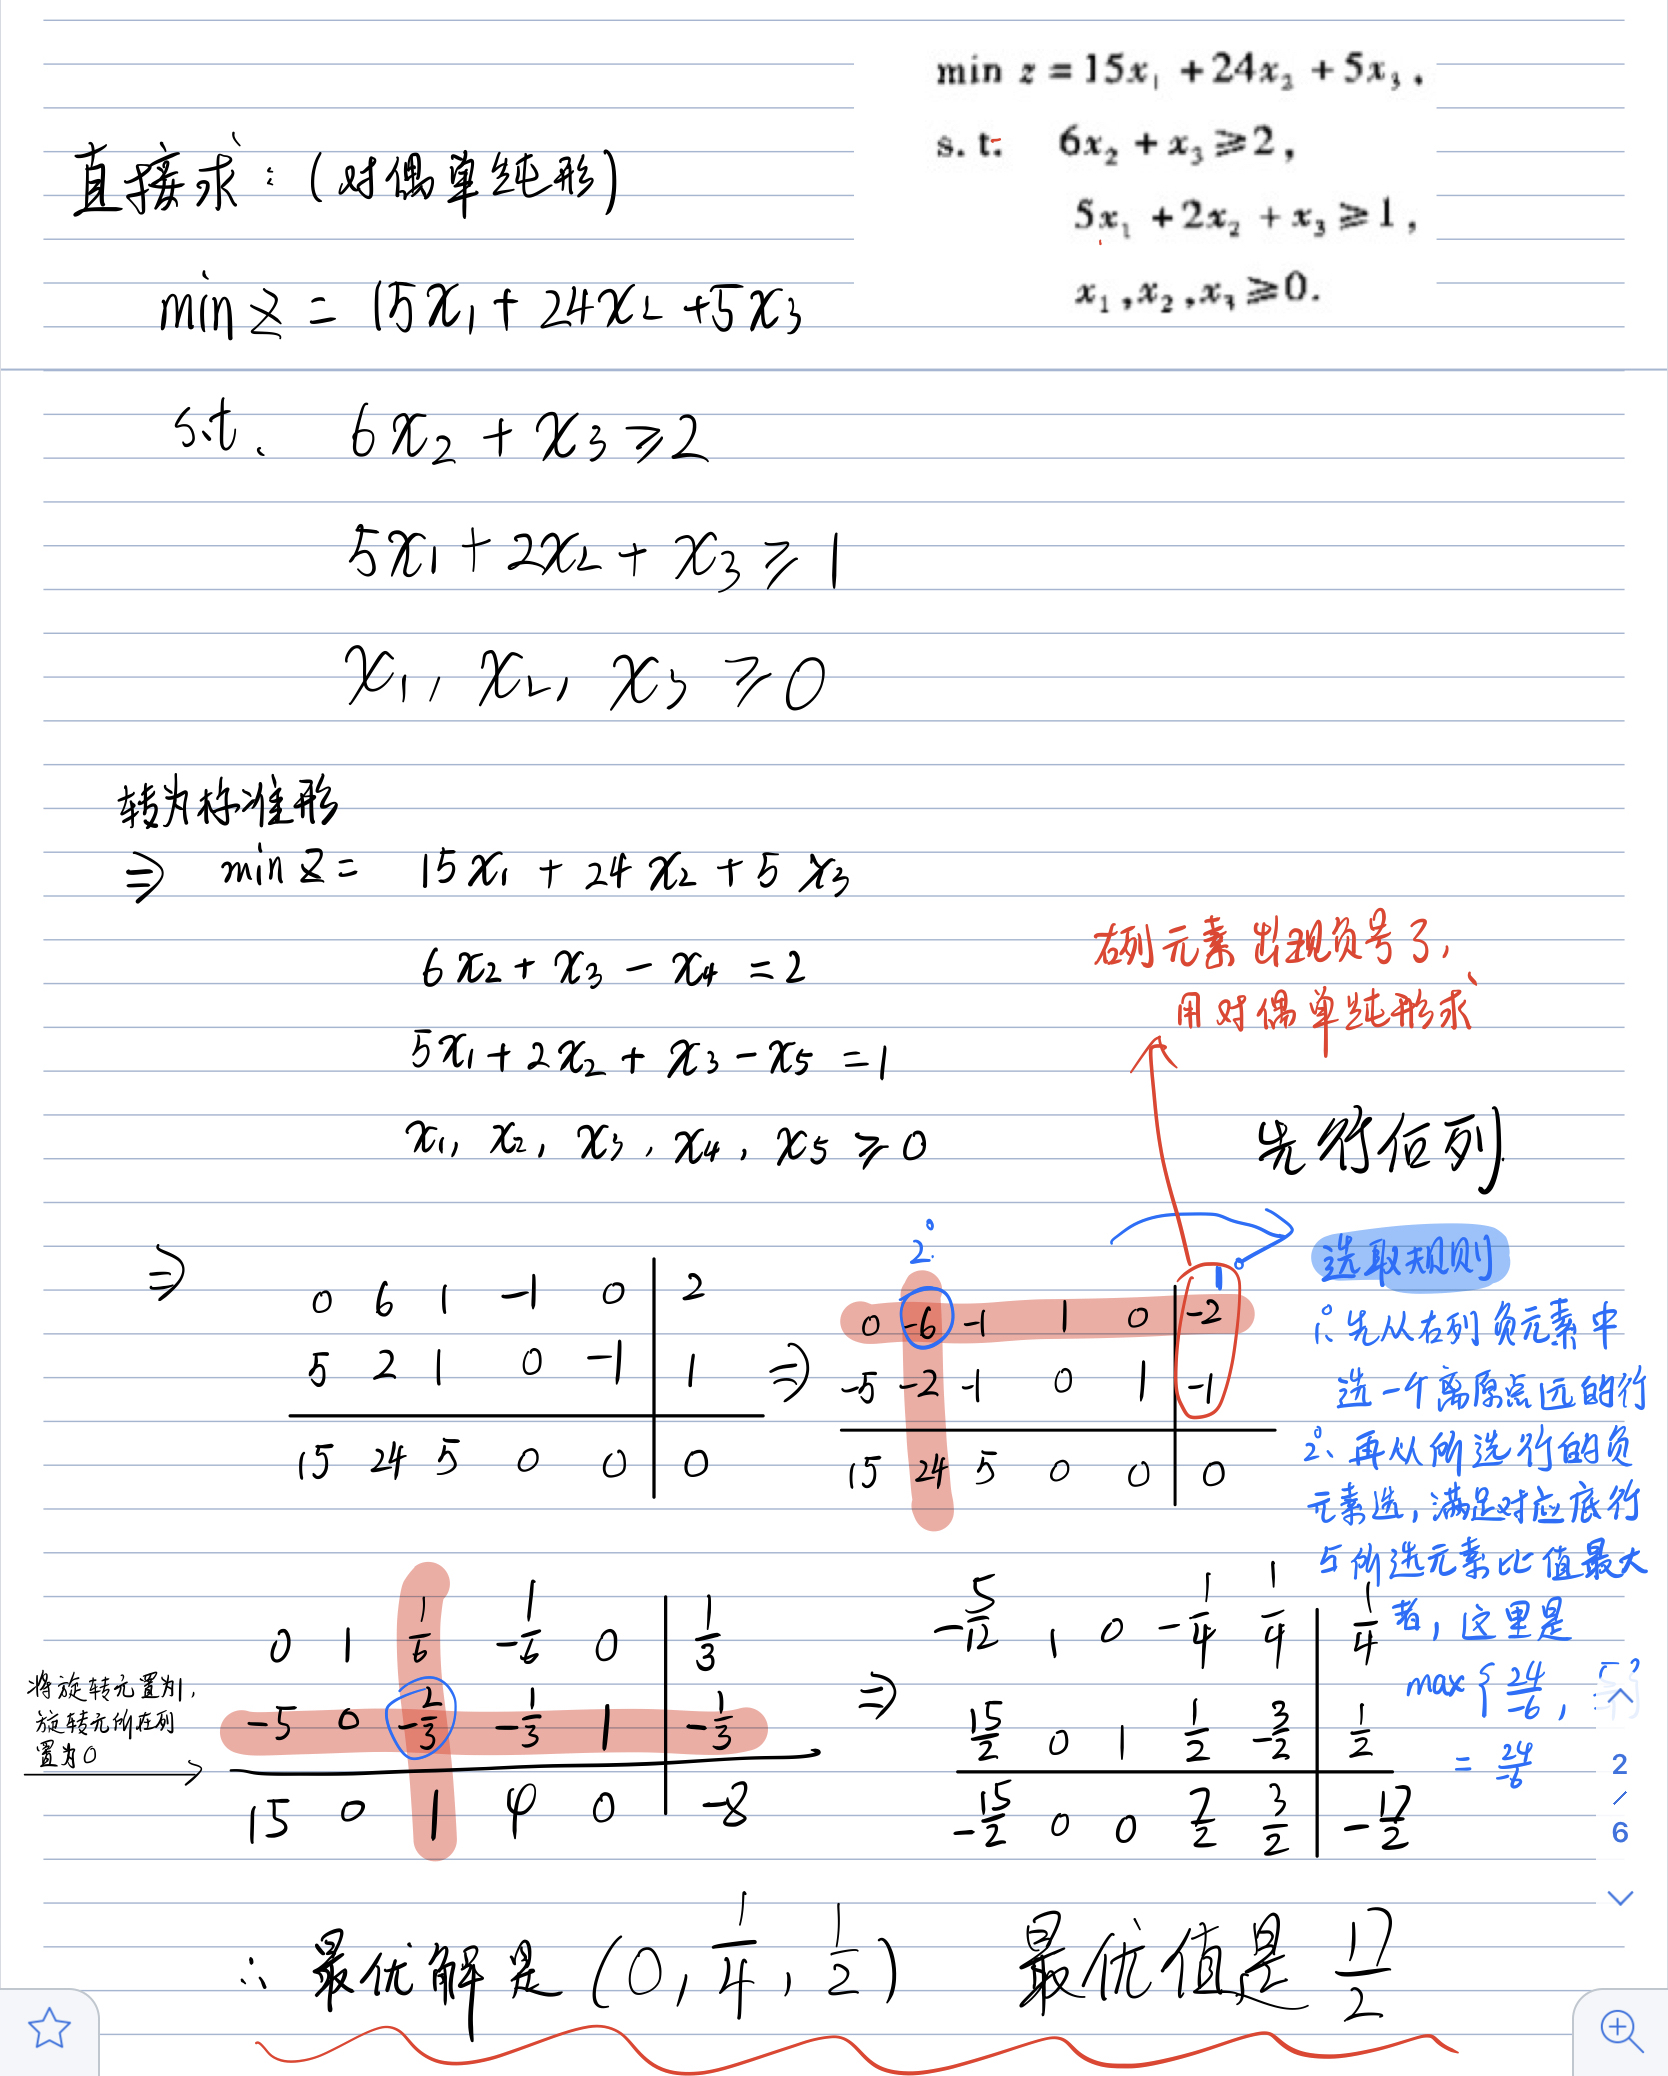 min z = 15x₁ + 24x₂ + 5x₃ ,
s. t. 6x₂ + x₃ ⩾ 2 ,
5x₁ + 2x₂ + x₃ ⩾ 1 ,
x₁ , x₂ , x₃ ⩾ 0 .
直接求：(对偶单纯形)
min z = 15x₁ + 24x₂ + 5x₃
s.t. 6x₂ + x₃ ⩾ 2
5x₁ + 2x₂ + x₃ ⩾ 1
x₁, x₂, x₃ ⩾ 0
转为标准形
⇒ min z = 15x₁ + 24x₂ + 5x₃
6x₂ + x₃ - x₄ = 2
5x₁ + 2x₂ + x₃ - x₅ = 1
x₁, x₂, x₃, x₄, x₅ ⩾ 0
右列元素出现负号了,
用对偶单纯形求
先行后列.
⇒
0 6 1 -1 0 | 2
5 2 1 0 -1 | 1
15 24 5 0 0 | 0
⇒
2°
1°
0 -6 -1 1 0 | -2
-5 -2 -1 0 1 | -1
15 24 5 0 0 | 0
选取规则
1°、先从右列负元素中
选一个离原点远的行
2°、再从所选行的负
元素选, 满足对应底行
与所选元素比值最大
者, 这里是
max { 24/-6 ,
= 24/-6
将旋转元置为1,
旋转元所在列
置为0
0 1 1/6 -1/6 0 | 1/3
-5 0 -2/3 -1/3 1 | -1/3
15 0 1 4 0 | -8
⇒
-5/12 1 0 -1/4 1/4 | 1/4
15/2 0 1 1/2 -3/2 | 1/2
-15/2 0 0 7/2 3/2 | -17/2
2
/
6
∴ 最优解是 (0, 1/4, 1/2) 最优值是 17/2